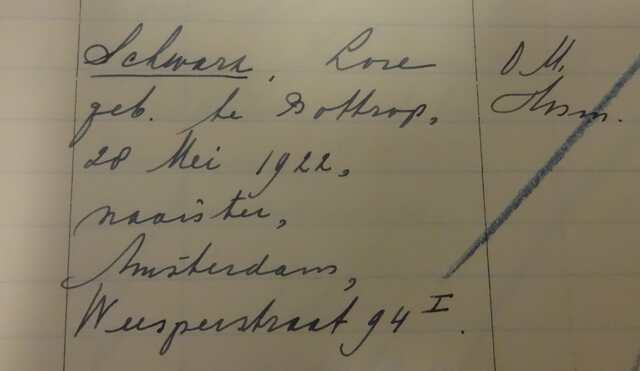 Schwarz, Lore
geb. te Bottrop,
28 Mei 1922,
naaister,
Amsterdam,
Weesperstraat 94 I.
O M.